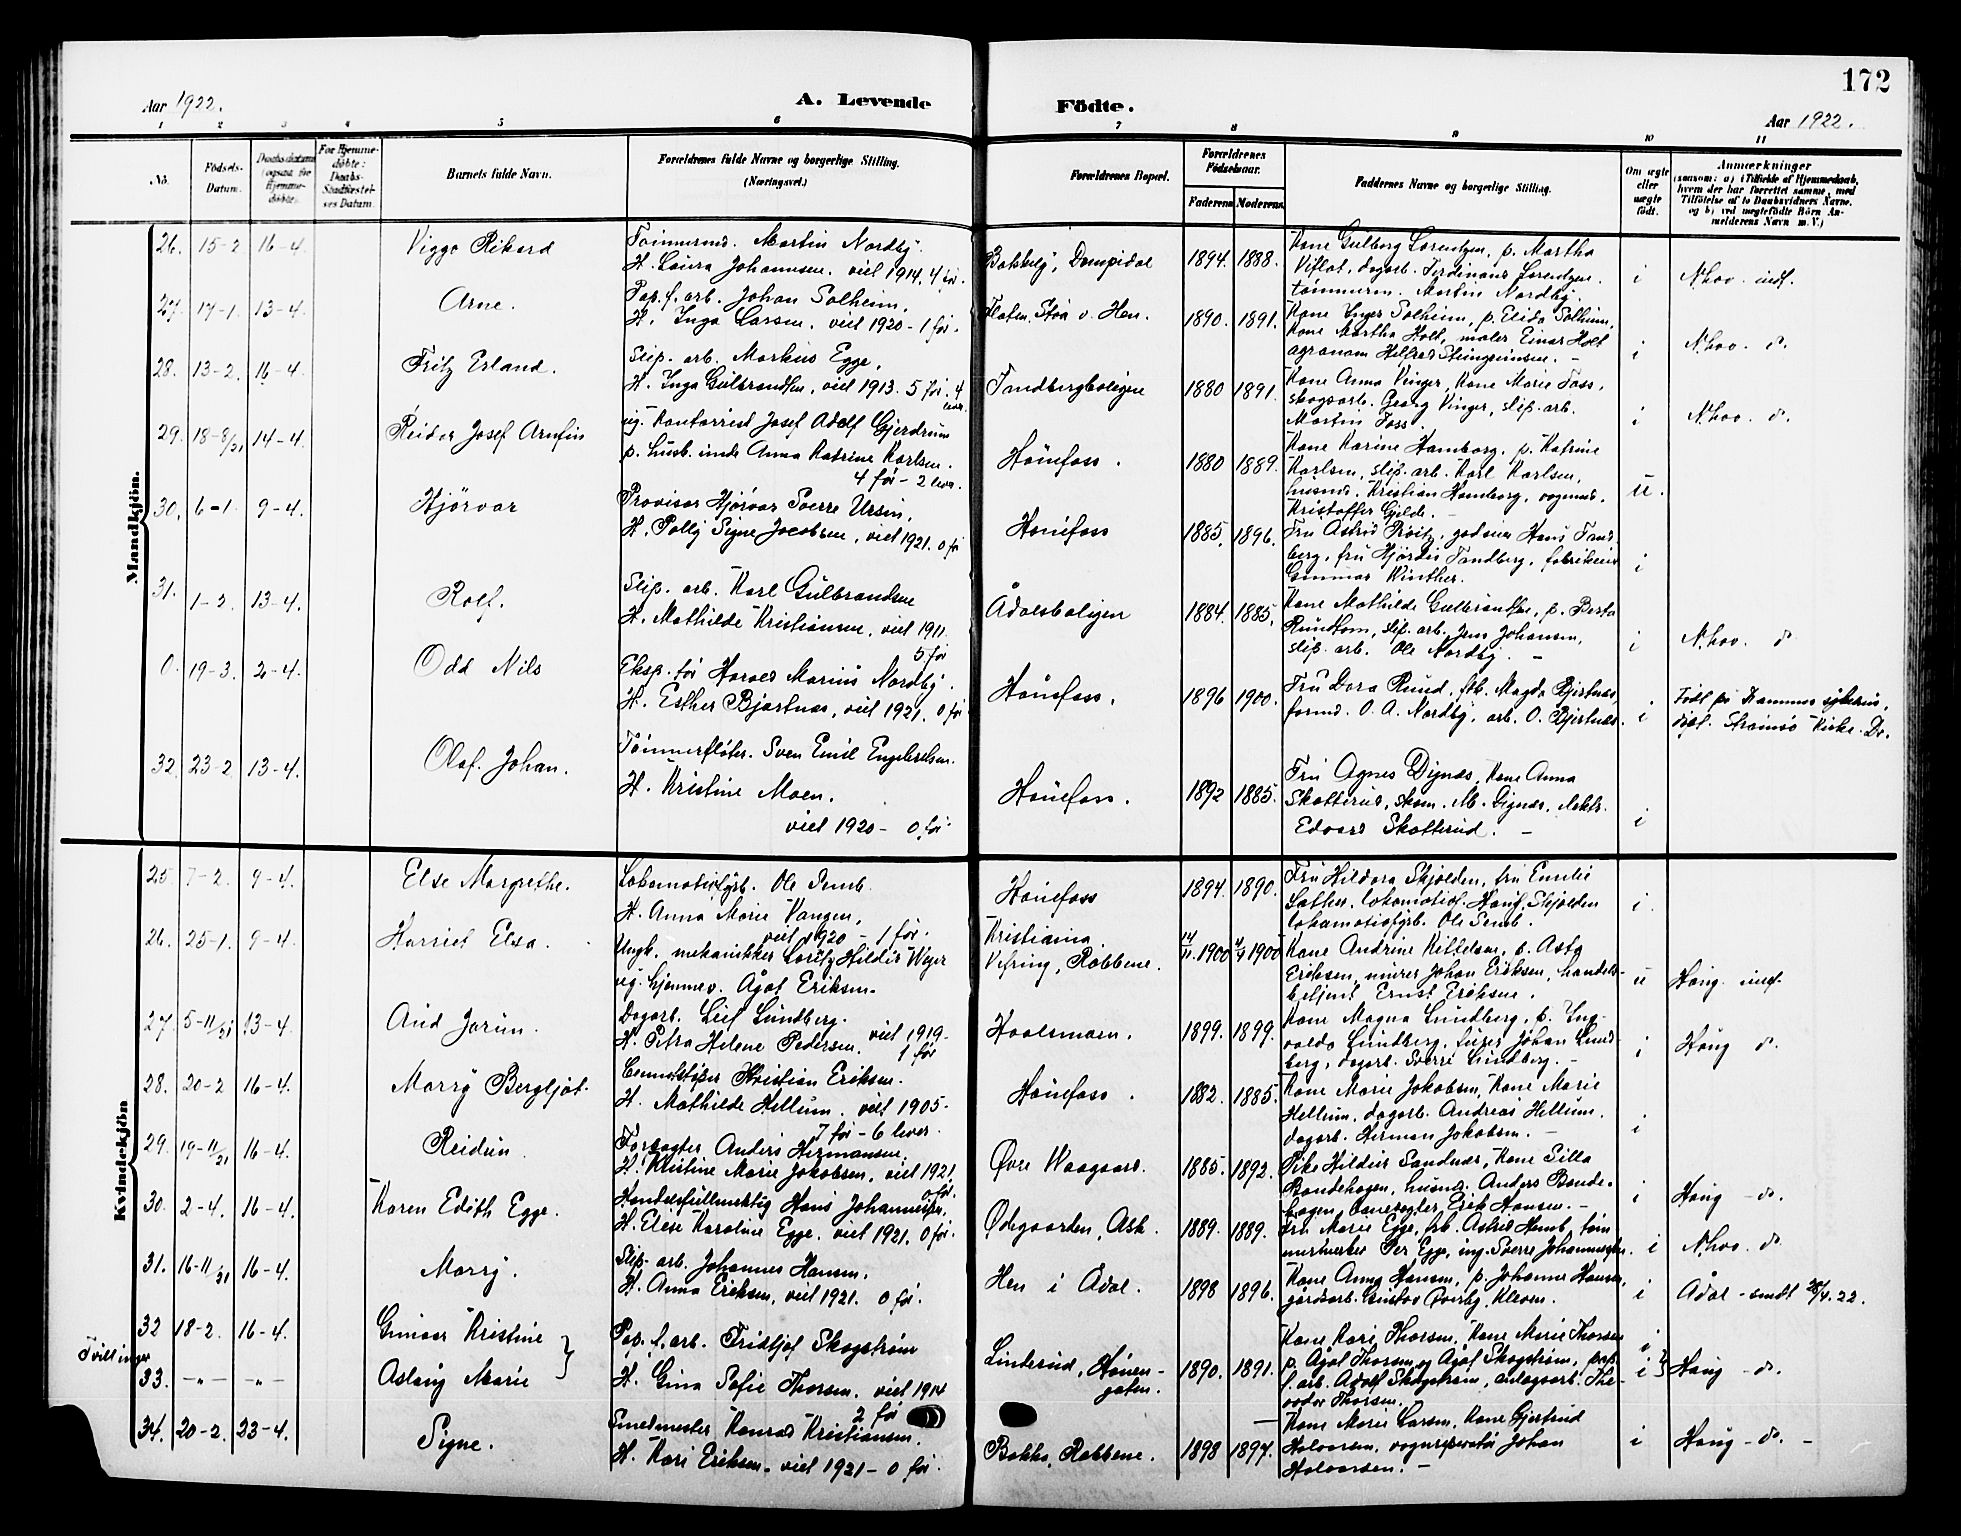 172
Aar 1922.
A. Levende
Födte.
Aar 1922.
1 2 3 4 5 6 7 8 9 10 11
No.
Födsels-
Datum.
Daabsdatum
(ogsaa for
Hjemme-
döbte).
For Hjemme-
döbte:
Daabs-
Stadfæstel-
ses Datum.
Barnets fulde Navn.
Forældrenes fulde Navne og borgerlige Stilling.
(Næringsvei.)
Forældrenes Bopæl.
Forældrenes
Födselsaar.
Faderens Moderens
Faddernes Navne og borgerlige Stilling.
Om ægte
eller
uægte
födt.
Anmærkninger
(saasom: a) i Tilfælde af Hjemmedaab,
hvem der har forrettet samme, med
Tilföielse af to Daabsvidners Navne,
og b) ved uægtefödte Börn An-
melderens Navn m. V.)
Mandkjön.
26. 15-2 16-4. Viggo Rikard
Tömmermd. Martin Nordby.
H. Laura Johannsen. viet 1914. 4 før.
Dompidal 1894. 1888.
Kone Gulborg Lorentzen, p. Martha
Viflat, dagarb. Ferdinand Lorentzen.
tømmerm. Martin Nordby.
i N.hov. indf.
27. 17-1. 13-4. Arne.
Pap.f. arb. Johan Solheim,
H. Inga Larsen, viet 1920 - 1 før.
Støa v. Hen. 1890. 1891.
Kone Inger Solheim, p. Elida Solheim,
Kone Martha Holt, maler Einar Holt
agronom Helfred Steingrimsen. -
i N.hov. d.
28. 13-2. 16-4. Fritz Erland.
Slip. arb. Markus Egge,
H. Inga Gulbrandsen, viet 1913. 5 før. 4
lever.
Tandbergboligen 1880 1891.
Kone Anna Vinger, Kone Marie Foss,
skogsarb. Georg Vinger, slip. arb.
Martin Foss.
i N.hov. d.
29. 18-8/21 14-4. Reidar Josef Arnfin
ug. Kontorrist Josef Adolf Gjerdrum
p. husb. inde Anna Katrine Karlsen.
4 før - 2 lever.
Hönefoss. 1880 1889.
Kone Karine Hamborg, p. Katrine
Karlsen, slip. arb. Karl Karlsen,
husmd. Kristian Hamborg, vognmd.
Kristoffer Gjelde. -
u.
30. 6-1. 9-4. Hjörvar
Provisor Hjörvar Sverre Ursin,
H. Polly Signe Jacobsen, viet 1921. 0 før
Hönefoss 1885. 1896.
Fru Astrid Prøitz, godseier Hans Tand-
berg, fru Hjørdis Tandberg, fabrikeier
Gunnar Winther.
i
31. 1-2. 13-4. Rolf.
Slip. arb. Karl Gulbrandsen
H. Mathilde Kristiansen, viet 1911.
5 før
Ådalsboligen 1884. 1885.
Kone Mathilde Gulbrandsen, p. Berta
Rundtom, slip. arb. Jens Johansen,
slip. arb. Ole Nordby. -
i N.hov. d
0. 19-3. 2-4. Odd Nils
Eksp. før Harald Marius Nordby.
H. Esther Bjertnæs, viet 1921. 0 før
Hönefoss. 1896 1900.
Fru Dora Rund, frk. Magda Bjertnæs,
formd. O. A. Nordby, arb. O. Bjertnæs.
i
Født på Drammens sykehus,
døpt. Strømsø Kirke. Dr.
32. 23-2 13-4. Olaf Johan.
Tömmerfløter. Sven Emil Engebretsen.
H. Kristine Moen.
viet 1920 - 0 før
Hönefoss. 1892 1885.
Fru Agnes Dignæs, Kone Anna
Skotterud, skom. M. Dignæs, elektr.
Edvard Skotterud. -
i
Kvindekjön
25 7-2. 9-4. Else Margrethe.
Lokomotivfyrb. Ole Semb.
H. Anna Marie Vangen,
viet 1920 - 1 før.
Hönefoss 1894. 1890.
Fru Hildora Skjolden, fru Emilie
Sather, lokomotivf. Hans Skjolden
lokomotivfyrb. Ole Semb.
i.
26. 25-1. 9-4. Harriet Elsa.
Ungk. mekanikker Loritz Hildir Weyer
ug. hjemmev. Ågot Eriksen.
Kristiania.
Vefring, Robbene.
14/11.1900 4/9 1900
Kone Andrine Kittelsen, p. Asta
Eriksen, murer Johan Eriksen, handels-
betjent Ernst Eriksen.
u Haug. indf.
27. 5-11/21 13-4. Aud Jorun.
Dagarb. Leif Lundberg.
H. Petra Helene Pedersen. viet 1919-
1 før
Hvalsmoen. 1899. 1899.
Kone Magna Lundberg, p. Ing-
valda Lundberg, Johan Lund-
berg, dagarb. Sverre Lundberg. -
i Haug d.
28. 20-2 16-4. Marry Bergljot.
Cementstøper Kristian Eriksen.
H. Mathilde Hellum. viet 1905-
7 før - 6 lever.
Hönefoss. 1882. 1885.
Kone Marie Jakobsen, Kone Marie
Hellum, dagarb. Andreas Hellum.
dagarb. Herman Jakobsen. -
i
29. 19-11/21 16-4. Reidun.
Forpagter Anders Hermansen.
H. Kristine Marie Jakobsen, viet 1921.
0 før.
Øvre Waagaard. 1885. 1892.
Pike Hildur Sandnæs, Kone Silla
Bondehagen, husmd. Anders Bonde-
hagen, banevogter Erik Hansen. -
i Haug - d.
30. 2-4. 16-4. Karen Edith Egge.
Handelsfullmektig Hans Johannesen.
H. Else Karoline Egge. viet 1921. 0 før.
Ødegaarden, Ask. 1889. 1889.
Fru Marie Egge, frk. Astrid Hemb, töm-
mermerker Per Egge, ing. Sverre Johannesen.
i N.hov. d.
31. 16-11/21 16-4. Marry.
Slip. arb. Johannes Hansen.
H. Anna Eriksen, viet 1921. 0 før.
Hen i Ådal. 1898 1896.
Kone Anna Hansen, p. Johanne Hansen,
gårdsarb. Gustav Øverby, Kleven.
i Ådal - sendt 28/4.22.
Tvillinger
32 18-2. 16-4. Gunvor Kristine
33. -"- -"- Aslaug Marie
Pap. f. arb. Fridtjof Skogstrøm
H. Gina Sofie Thorsen. viet 1914
2 før
Linderud, Hønen-
gaten. 1890. 1891.
Kone Kari Thorsen, Kone Marie Thorsen
p. Ågot Thorsen og Ågot Skogstrøm, pap.
f. arb. Adolf Skogstrøm, anlagsarb. The-
odor Thorsen.
i
i Haug - d.
34. 20-2. 23-4. Signe.
Smedmester Konrad Kristiansen.
H. Kari Eriksen. viet 1921 - 0 før.
Bakke, Robbene. 1898 1897.
Kone Marie Larsen, Kone Gjertrud
Halvorsen, vognreparatør Johan
Halvorsen. -
i Haug - d. -